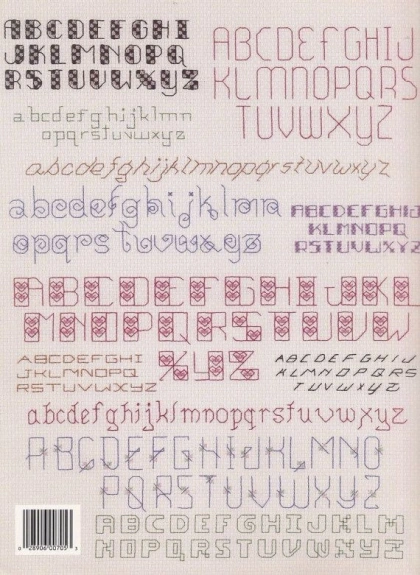 ABCDEFGHI
JKLMNOPQ
RSTUVWXYZ
ABCDEFGHIJ
KLMNOPQRS
TUVWXYZ
abcdefghijklmn
opqrstuvwxyz
abcdefghijklmnopqrstuvwxyz
abcdefghijklmn
opqrstuvwxyz
ABCDEFGHIJ
KLMNOPQ
RSTUVWXYZ
ABCDEFGHIJKL
MNOPQRSTUVW
XYZ
ABCDEFGHI
JKLMNOPQ
RSTUVWXYZ
ABCDEFGHIJ
KLMNOPQRS
TUVWXYZ
abcdefghijklmnopqrstuvwxyz
ABCDEFGHIJKLMNO
PQRSTUVWXYZ
ABCDEFGHIJKLM
NOPQRSTUVWXYZ
0 28906 00705 3